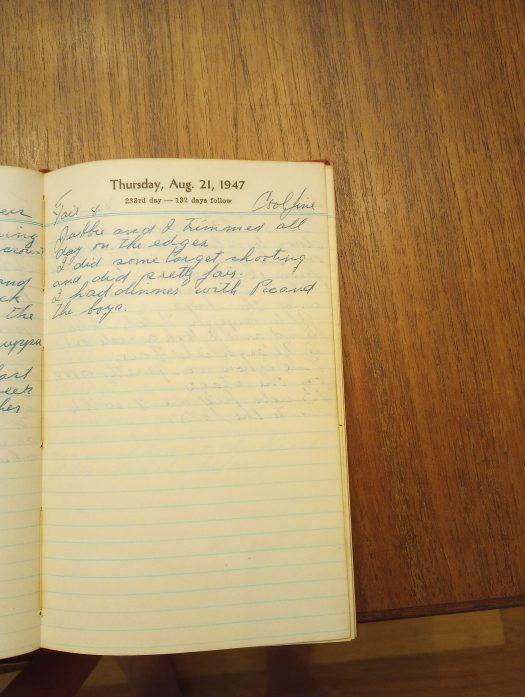 Thursday, Aug. 21, 1947
233rd day — 132 days follow
Fair & Cool fine
and I trimmed all
day on the edger
I did some target shooting
and did pretty fair.
I had dinner with and
the boys.
and
the
her